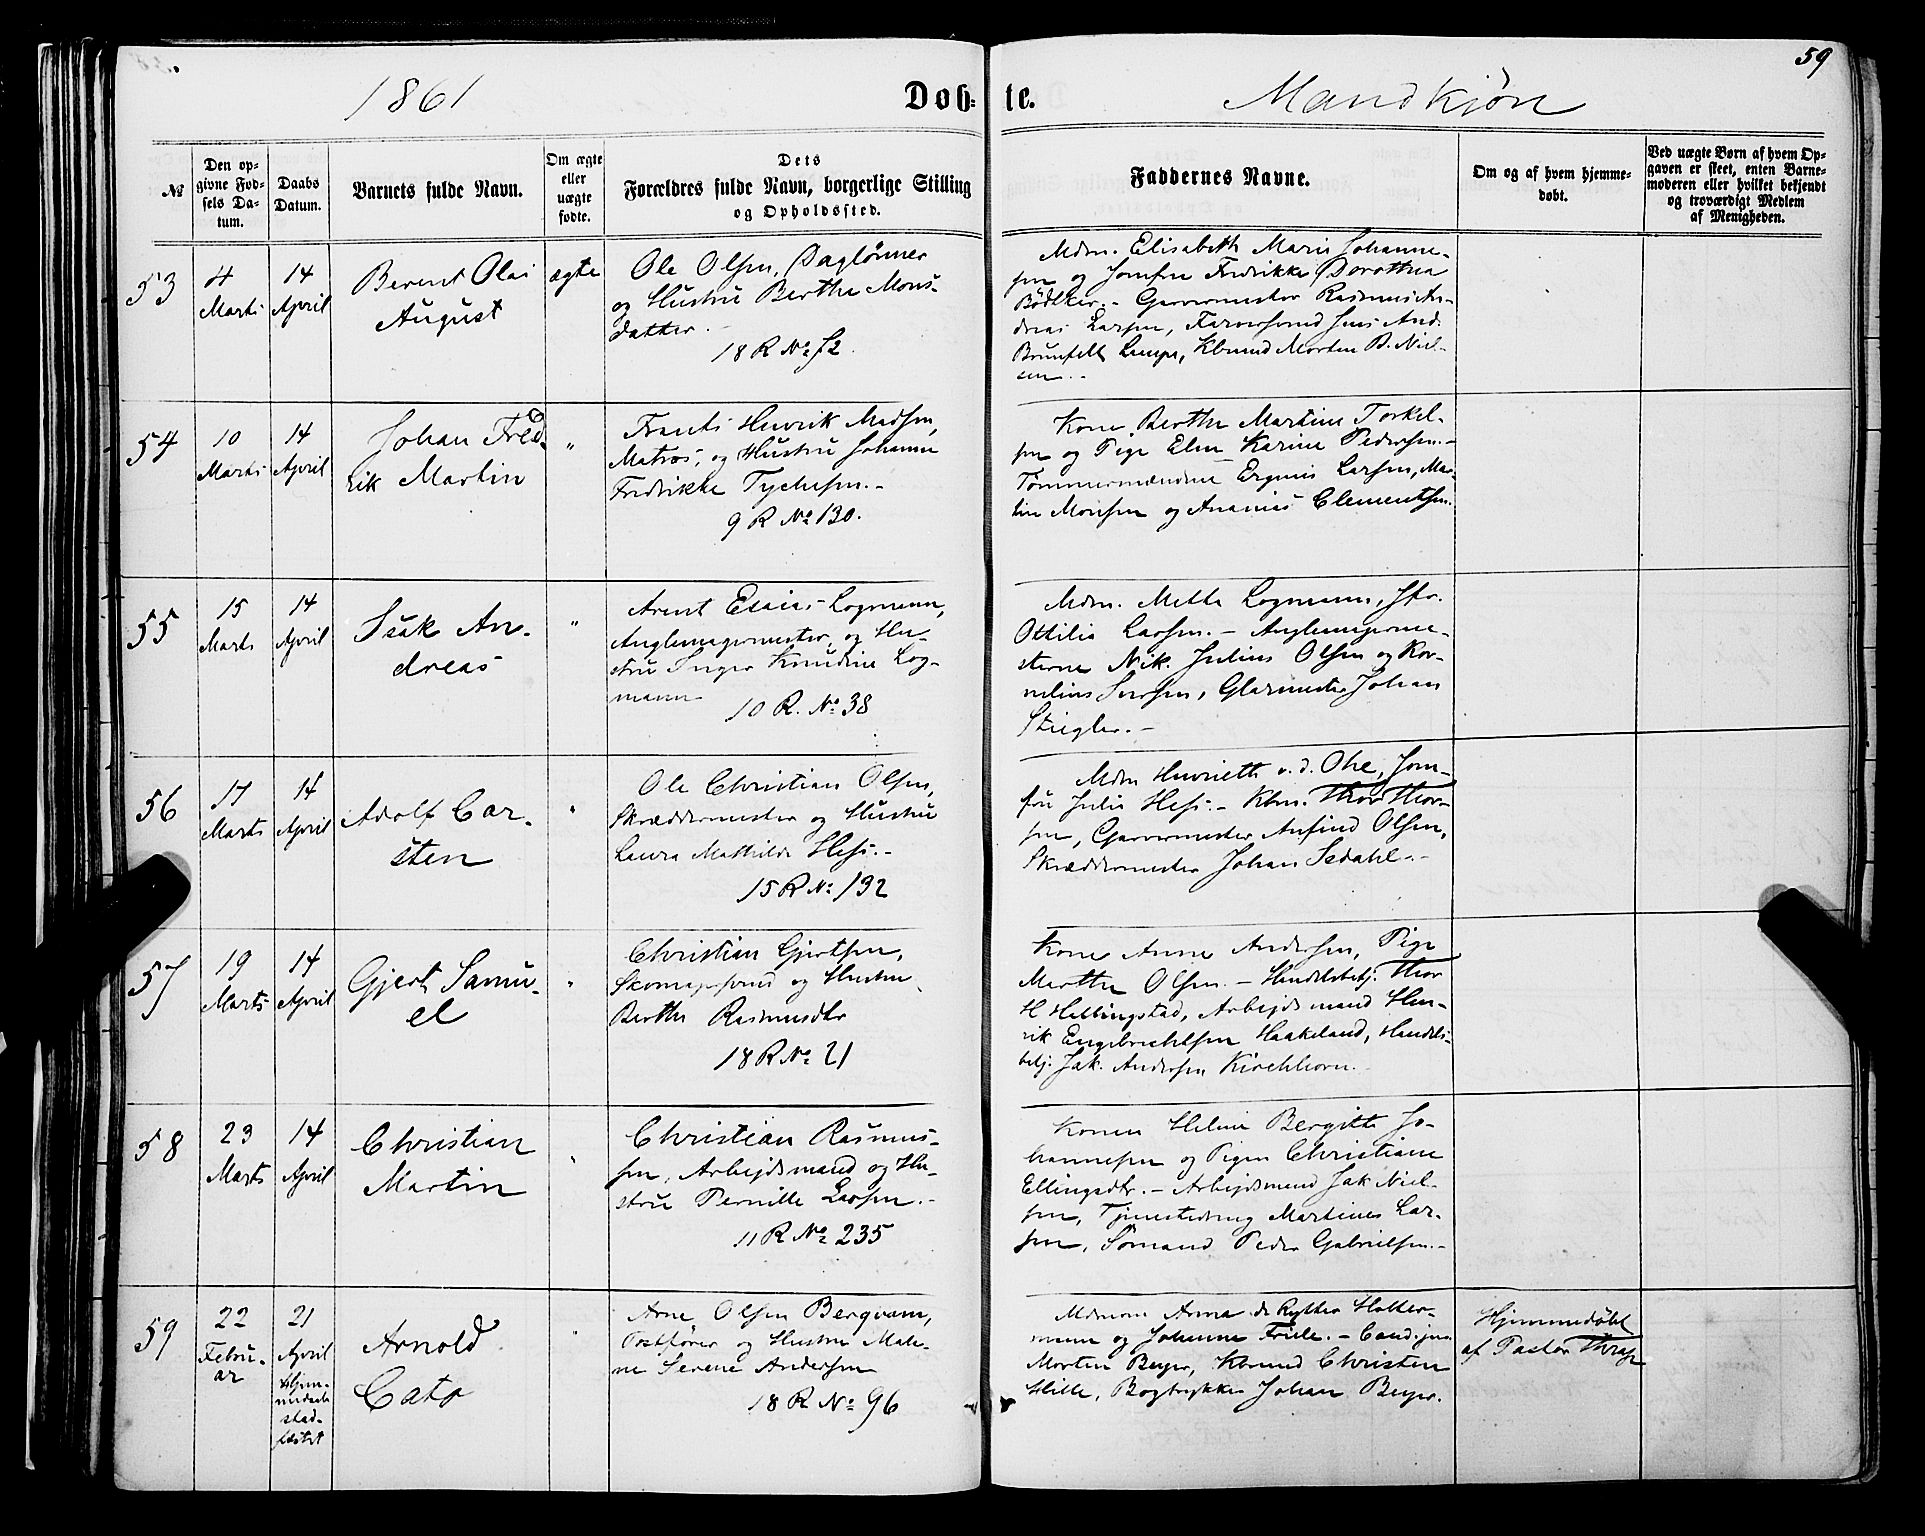 1861
Døb-te.
Mandkjøn
59
№
Den op-
givne Fød-
sels Da-
tum.
Daabs
Datum.
Barnets fulde Navn.
Om ægte
eller
uægte
fødte.
Dets
Forældres fulde Navn, borgerlige Stilling
og Opholdssted.
Faddernes Navne.
Om og af hvem hjemme-
døbt.
Ved uægte Børn af hvem Op-
gaven er skeet, enten Barne-
moderen eller hvilket bekjendt
og troværdigt Medlem
af Menigheden.
53
4
Marts
14
April
Berent Olai
August
ægte
Ole Olsen, Daglønner
og Hustru Berthe Mons-
datter.
18 R № 72
Mdm. Elisabeth Marie Johanne-
sen og Jomfru Fredrikke Dorothea
Bødtker. - Garvermester Rasmus An-
dreas Larsen, Farversvend Jens And.
Brunfelt Lampe, Kbmd Morten B. Niel-
sen. -
54
10
Marts
14
April
Johan Fred-
rik Martin
"
Frants Henrik Madsen,
Matros, og Hustru Johanne
Fredrikke Tychesen. -
9 R № 130.
Kone Berthe Martine Torkel-
sen og Pige Elen Karine Pedersen. -
Tømmermændene Erginus Larsen, Mar-
tin Monsen og Ananias Clementsen.
55
15
Marts
14
April
Isak An-
dreas
"
Arent Esaias Logmann,
Anglemagermester, og Hu-
stru Inger Knudine Log-
mann
10 R. № 38
Mdm. Mette Logmann, Jfr.
Ottilia Larsen. - Anglemagerme-
sterne Nik. Julius Olsen og Kor-
nelius Iversen, Glarmester Johan
Stiegler. -
56
17
Marts
14
April
Adolf Car-
sten
"
Ole Christian Olsen,
Skræddermester og Hustru
Laura Mathilde Hess. -
15 R № 132
Mdm Henriette v. d. Ohe, Jom-
fru Julie Hess. - Kbm. Thor Thor-
sen, Garvermester Anfind Olsen,
Skræddermester Johan Sedahl. -
57
19
Marts
14
April
Gjert Samu-
el
"
Christian Gjertsen,
Skomagersvend og Hustru
Berthe Rasmusdtr
18 R № 21
Kone Anne Andersen, Pige
Marthe Olsen. - Handelsbetj. Thor
H Hellingstad, Arbejdsmand Hen-
rik Engebrichtsen Haakeland, Handels-
betj. Jak. Andersen Kirchhorn. -
58
23
Marts
14
April
Christian
Martin
"
Christian Rasmus-
sen, Arbejdsmand og Hu-
stru Pernille Larsen. -
11 R № 235
Konen Heline Bergitte Jo-
hannesen og Pigen Christiane
Ellingsdtr. - Arbejdsmand Jak Niel-
sen, Tjenestedreng Martines Lar-
sen, Sømand Peder Gabrielsen. -
59
22
Febru-
ar
21
April
Hjem-
medaab
stad-
fæstet
Arnold
Cato
"
Arne Olsen Bergvam,
Postfører og Hustru Male-
ne Serene Andersen
18 R № 96
Mdmm Anna de Rytter Holter-
mann og Johanne Friele. - Cand. jur.
Morten Beyer, Kbmd Christen
Hille, Bogtrykker Johan Beyer.
Hjemmedøbt
af Pastor Thrap